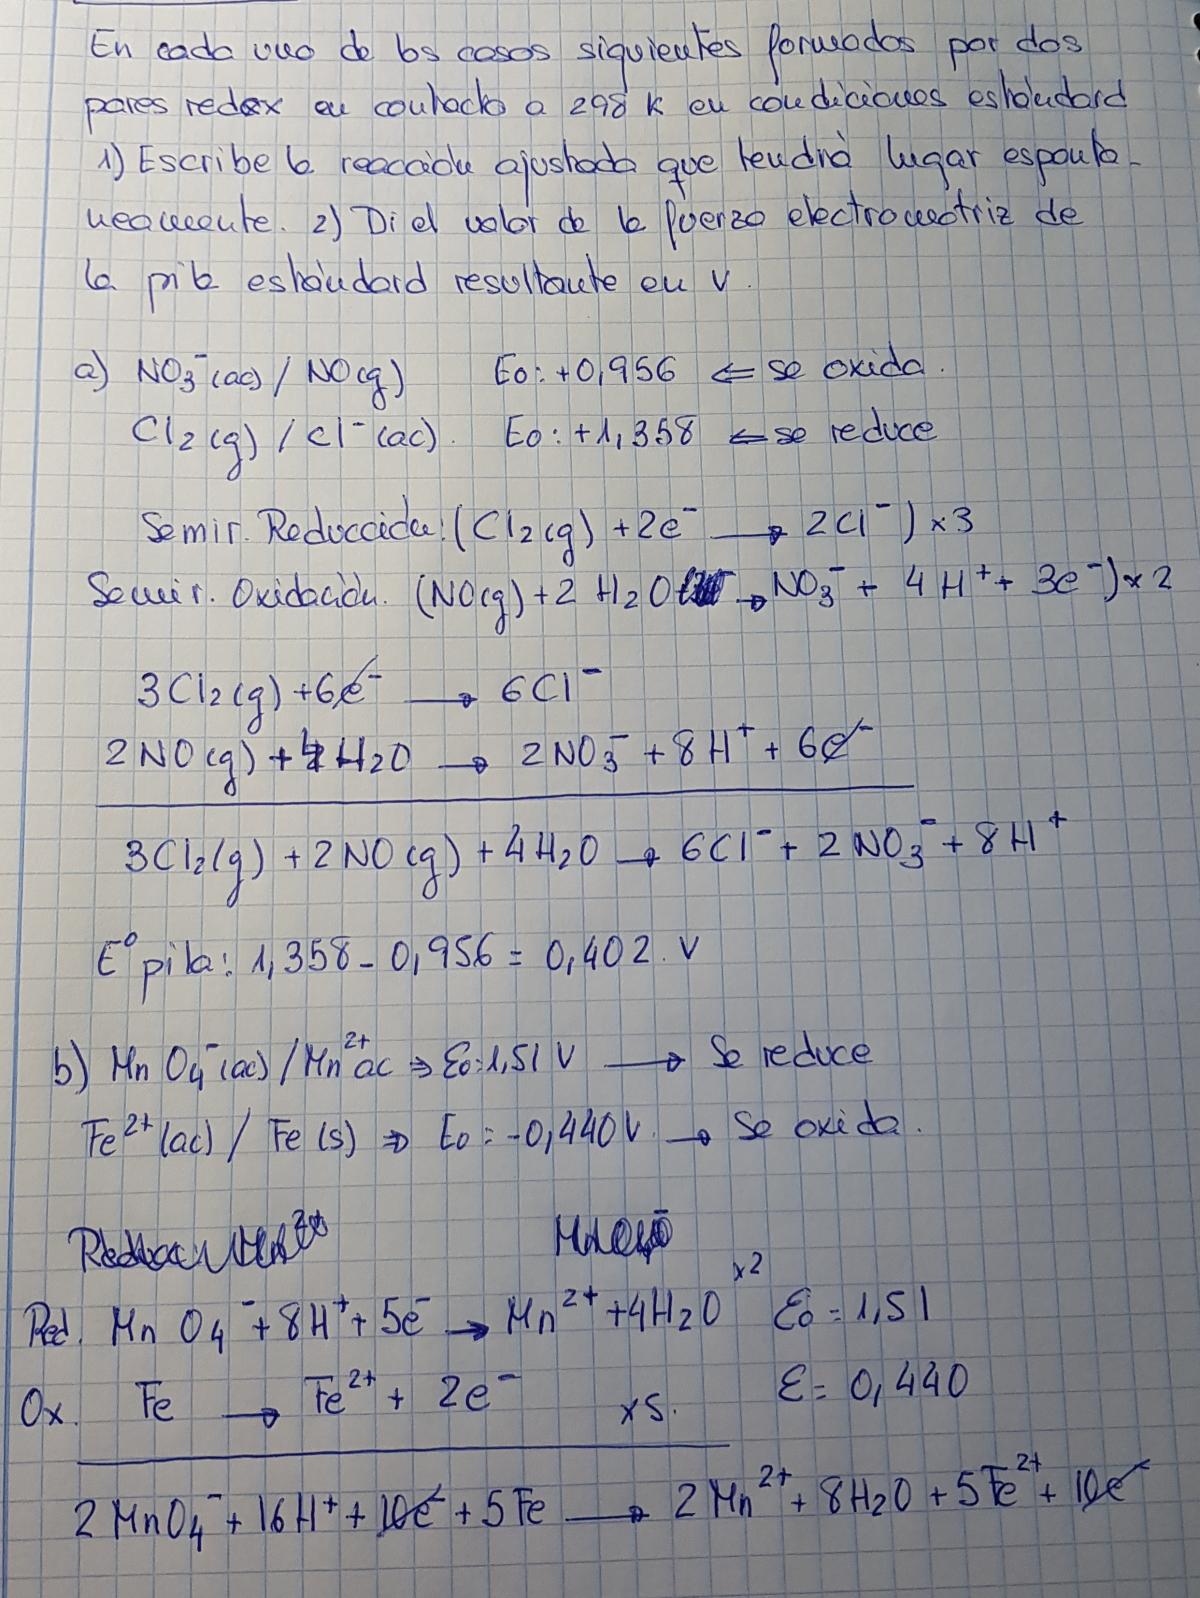 En cada uno de los casos siguientes formados por dos
pares redox en contacto a 298 K en condiciones estándard
1) Escribe la reacción ajustada que tendrá lugar espontá-
neamente. 2) Di el valor de la fuerza electromotriz de
la pila estándard resultante en V.
a) NO3⁻(ac) / NO(g) Eo: +0,956 ⇐ se oxida.
Cl2(g) / Cl⁻(ac). Eo: +1,358 ⇐ se reduce
Semir. Reducción: (Cl2(g) + 2e⁻ → 2Cl⁻) x3
Semir. Oxidación. (NO(g) + 2 H2O → NO3⁻ + 4H⁺ + 3e⁻) x2
3Cl2(g) + 6e⁻ → 6Cl⁻
2NO(g) + 4H2O → 2NO3⁻ + 8H⁺ + 6e⁻
3Cl2(g) + 2NO(g) + 4H2O → 6Cl⁻ + 2NO3⁻ + 8H⁺
E° pila: 1,358 - 0,956 = 0,402. V
b) MnO4⁻(ac) / Mn²⁺ac ⇒ Eo=1,51 V → Se reduce
Fe²⁺(ac) / Fe(s) ⇒ Eo = -0,440V. → Se oxida.
Red. MnO4⁻ + 8H⁺ + 5e⁻ → Mn²⁺ + 4H2O x2 Eo = 1,51
Ox. Fe → Fe²⁺ + 2e⁻ x5. E = 0,440
2MnO4⁻ + 16H⁺ + 10e⁻ + 5Fe → 2Mn²⁺ + 8H2O + 5Fe²⁺ + 10e⁻